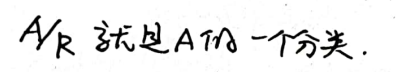 A/R 就是A的一个分类.